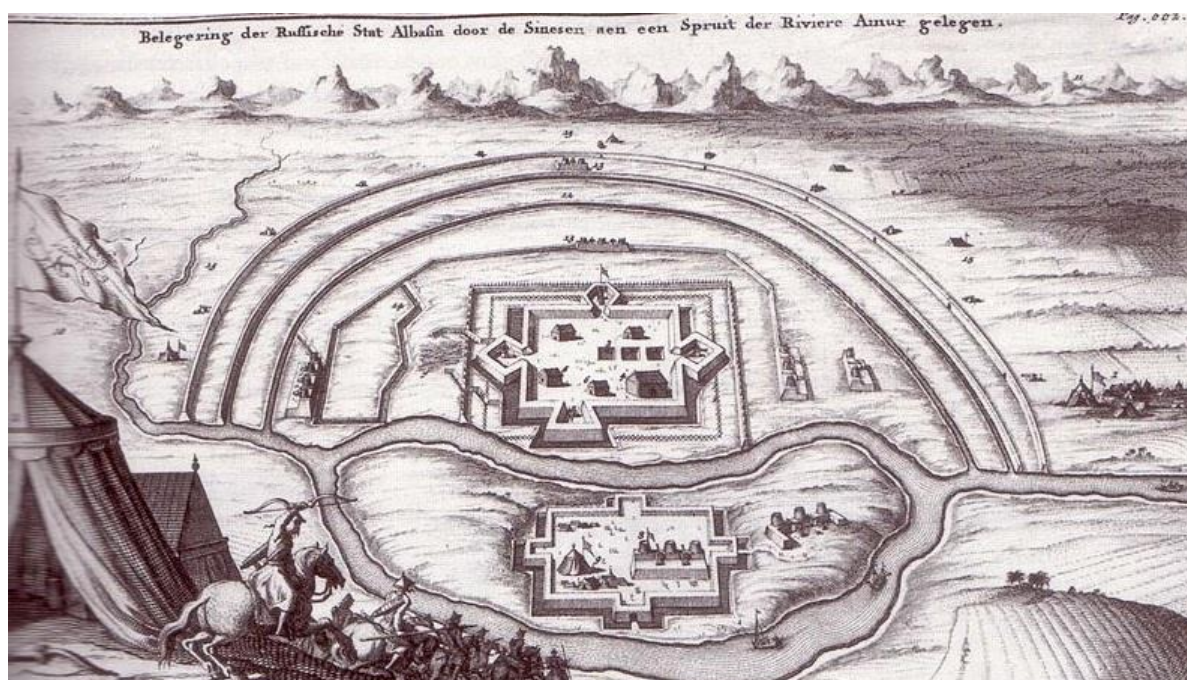 Belegering der Russische Stat Albasin door de Sinesen aen een Spruit der Riviere Amur gelegen.
Pag. 662.
12
13
14
15